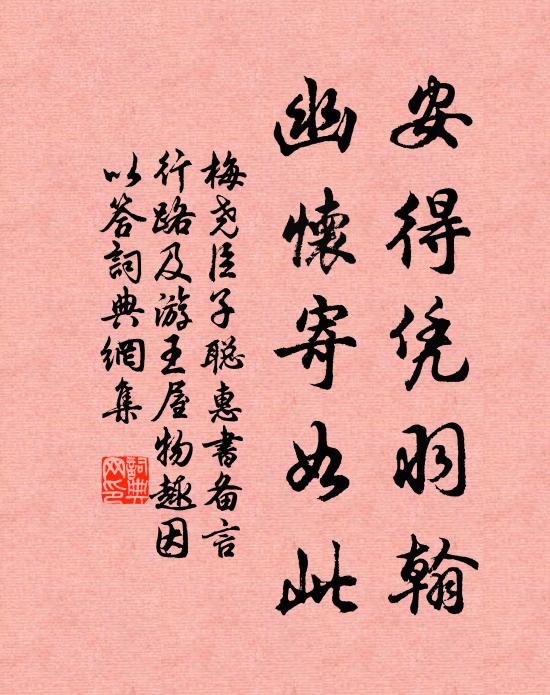 安得凭羽翰
幽懷寄如此
梅尧臣子聪惠書备言
行路及游王屋物趣因
以答詞典網集
詞典
网印